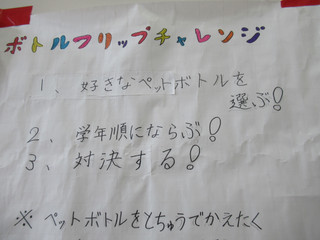 ボトルフリップチャレンジ
1、好きなペットボトルを
選ぶ!
2、学年順にならぶ!
3、対決する!
※ペットボトルをとちゅうでかえたく